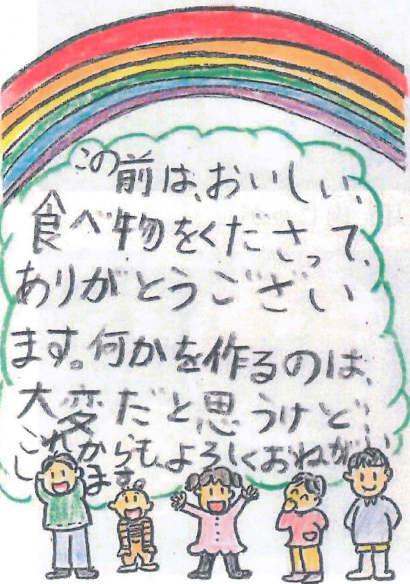 この前は、おいしい、
食べ物をくださって、
ありがとうござい
ます。何かを作るのは、
大変だと思うけど、
これからも、よろしくおねがい
します。